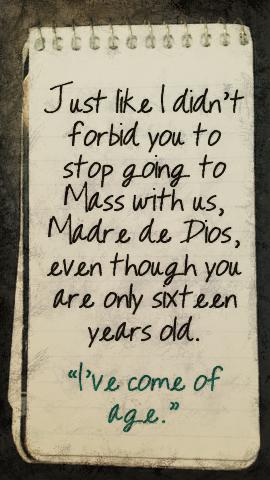 Just like I didn't
forbid you to
stop going to
Mass with us,
Madre de Dios,
even though you
are only sixteen
years old.
"I've come of
age."